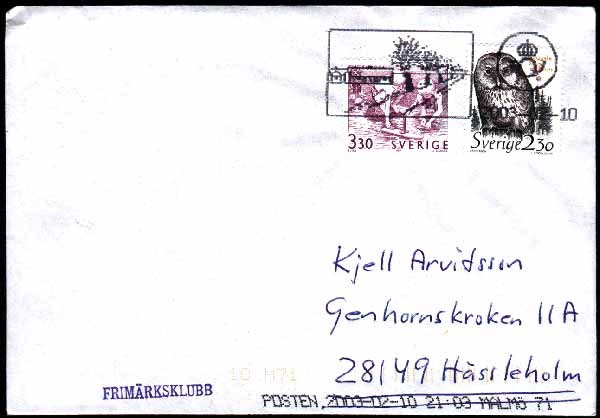 2003-02-10
3.30 SVERIGE
Sverige 2.30
Kjell Arvidsson
Genhornskroken 11A
28149 Hässleholm
10 M71
FRIMÄRKSKLUBB
POSTEN 2003-02-10 21:03 MALMÖ 71